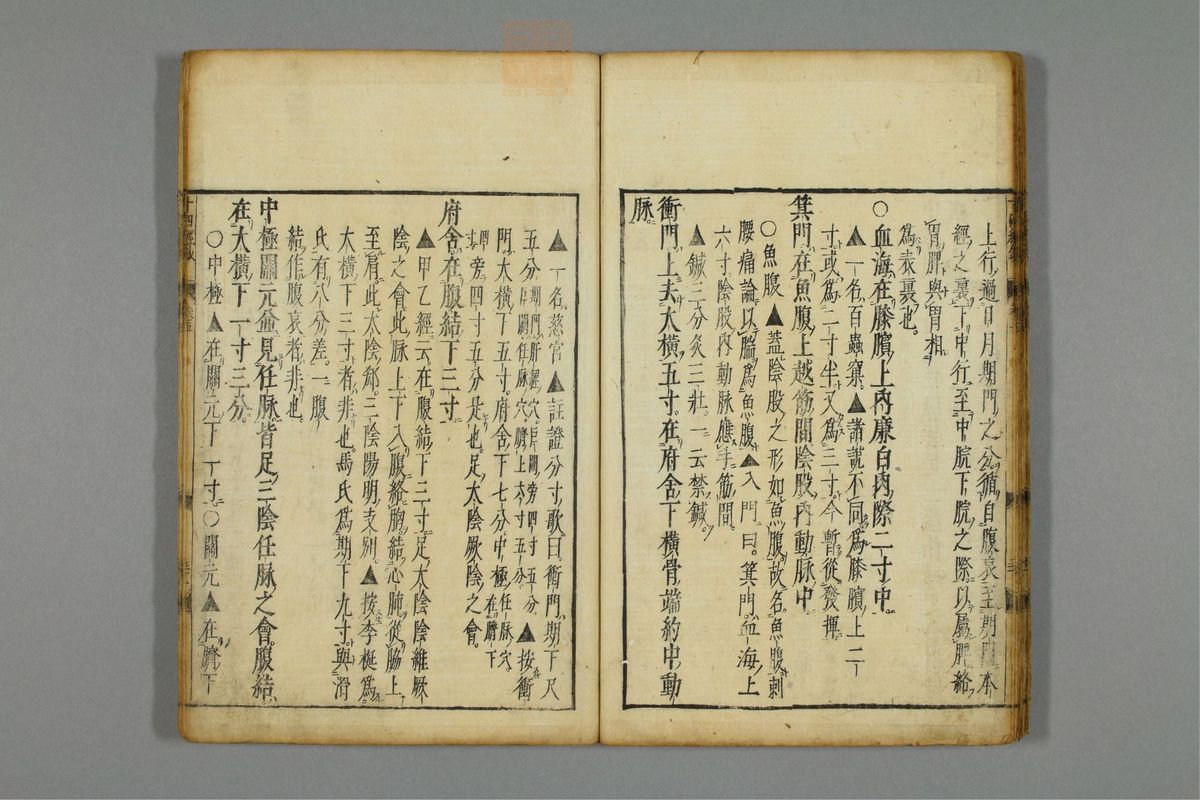 上行過日月期門之分循自腹哀至期門本
經之裏下中行至中脘下脘之際以屬脾絡
胃脾與胃相
爲表裏也
○血海在膝臏上內廉白肉際二寸中
▲一名百蟲窠▲諸說不同爲膝臏上二
寸或爲二寸半又爲三寸今暫從發揮
箕門在魚腹上越筋間陰股內動脉中
○魚腹▲蓋陰股之形如魚腹故名魚腹刺
腰痛論以腨爲魚腹▲入門曰箕門血海上
六寸陰股內動脉應手筋間
▲鍼三分灸三壯一云禁鍼
衝門上去大橫五寸在府舍下橫骨端約中動
脉
▲一名慈宮▲註證分寸歌曰衝門期下尺
五分期門肝經穴巨闕旁四寸五分巨闕任脉穴臍上六寸五分▲按衝
門大橫下五寸府舍下七分中極任脉穴在臍下
四寸旁四寸五分是也足太陰厥陰之會
府舍在腹結下三寸
▲甲乙經云在腹結下三寸足太陰陰維厥
陰之會此脉上下入腹絡胸結心肺從脇上
至肩此太陰郄三陰陽明支別▲按李梴爲
大橫下三寸者非也馬氏爲期下九寸與滑
氏有八分差一腹
結作腹哀者非也
中極關元並見任脉皆足三陰任脉之會腹結
在大橫下一寸三分
○中極▲在關元下一寸○關元▲在臍下